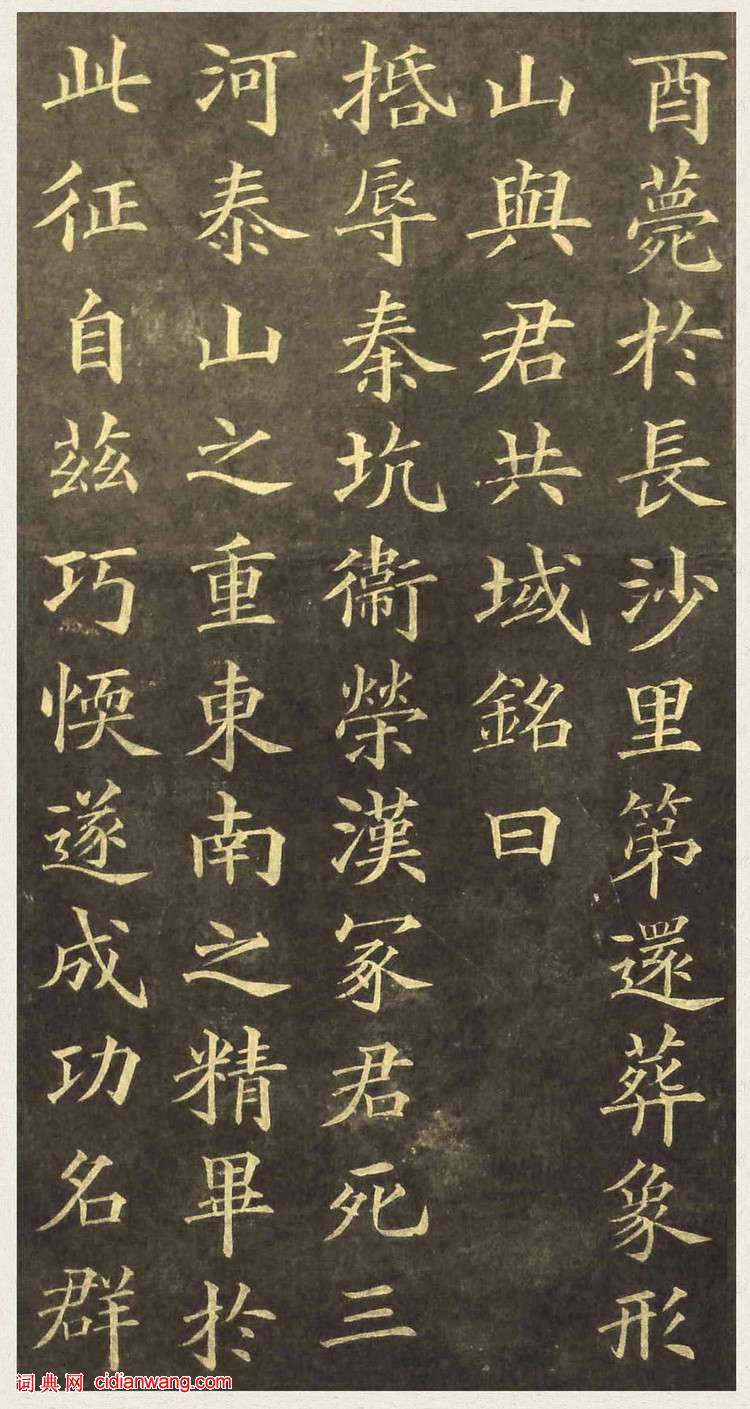 酉薨於長沙里第還葬象形
山與君共域銘曰
抵辱秦坑衞榮漢冢君死三
河泰山之重東南之精畢於
此征自茲巧愞遂成功名群
词典网 cidianwang.com